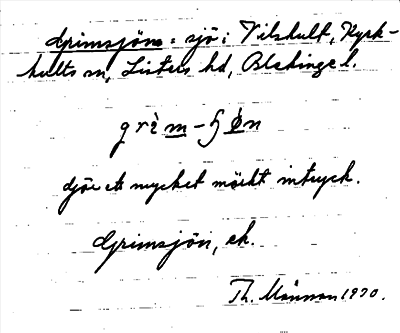 Grimsjön: sjö i Vilshult, Kyrk-
hults sn, Listers hd, Blekinge l.
grìm-ɧøn
gör ett mycket mörkt intryck.
Grimsjön, ek.
Th. Månson 1970.